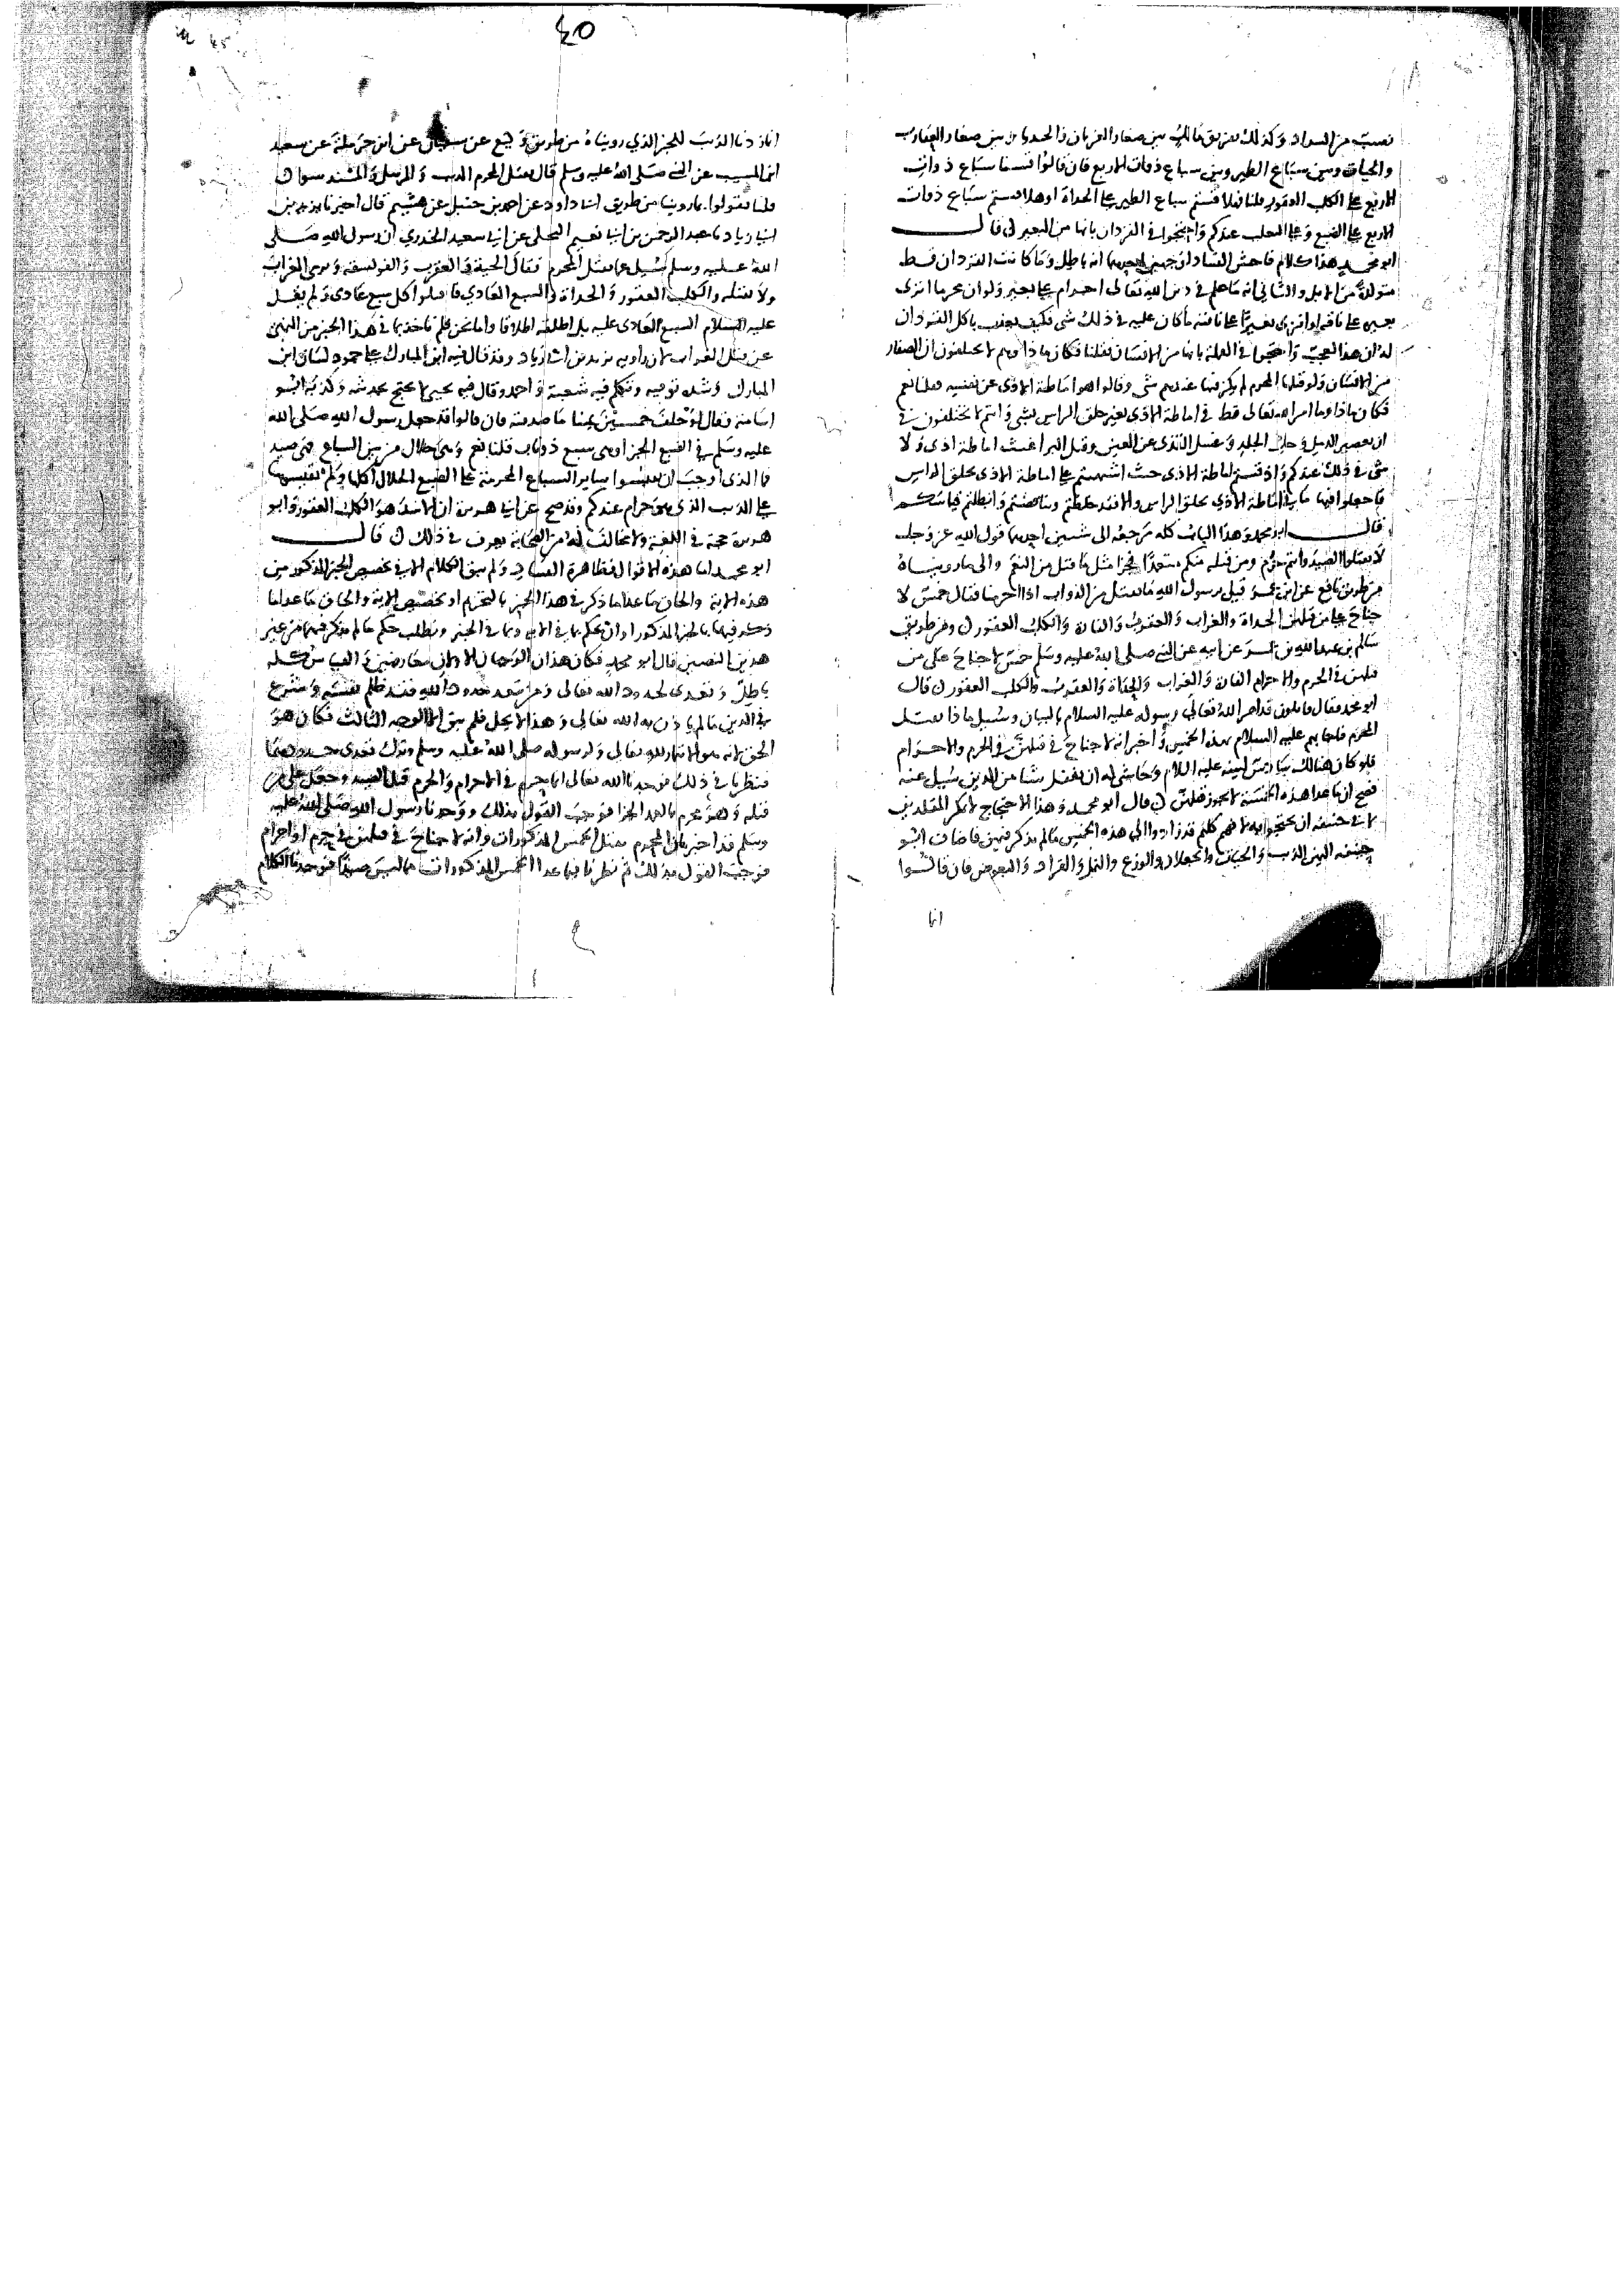 نصب من السواد وكذلك تفريق مالك بين صغار الغربان والحديا وبين صغار العقارب
والحيات وبين سباع الطير وبين سباع ذوات الاربع فان قالوا قسنا سباع ذوات
الاربع على الكلب العقور قلنا فهلا قستم سباع الطير على الحداة او هلا قستم سباع ذوات
الاربع على الضبع وعلى الثعلب عندكم واحتجوا في القردان بانها من البعير قال
ابو محمد هذا كلام فاحش الفساد لوجهين احدهما انه باطل وما كانت القردان قط
متولدة من الابل والثاني انه ما علم في دين الله تعالى احرام على بعير ولو ان محرما انزى
بعيره على ناقة او انزى بعيرا على ناقته ما كان عليه في ذلك شي فكيف يعذب باكل القردان
له ان هذا لعجب واحتجوا في القملة بانها من الانسان فقلنا فكان ماذا وهم لا يختلفون ان الصفار
من الانسان ولو قتلها المحرم لم يكن فيها عندهم شي وقالوا هو اماطة الاذى عن نفسه قلنا نعم
فكان ماذا وما امر الله تعالى قط في اماطة الاذى بغير حلق الراس بشي وانتم لا تختلفون في
ان تعصير الدمل وحك الجلد وغسل القذى عن العين وقتل البراغيث اماطة اذى ولا
شي في ذلك عندكم واذ قستم اماطة الاذى حيث اشتهيتم على اماطة الاذى بحلق الراس
فاجعلوا فيها ما في اماطة الاذى بحلق الراس والا فقد خلطتم وتناقضتم وابطلتم قياسكم
قال ابو محمد وهذا الباب كله مرجعه الى شيئين احدهما قول الله عز وجل
لا تقتلوا الصيد وانتم حرم ومن قتله منكم متعمدا فجزا مثل ما قتل من النعم والى ما رويناه
من طريق نافع عن ابن عمر قيل يرسول الله ما نقتل من الدواب اذا احرمنا فقال خمس لا
جناح على من قتلهن الحداة والغراب والعقرب والفارة والكلب العقور ومن طريق
سالم بن عبد الله بن عمر عن ابيه عن النبي صلى الله عليه وسلم خمس لا جناح على من
قتلهن في الحرم والاحرام الفارة والغراب والحداة والعقرب والكلب العقور قال
ابو محمد فقال قايلون قد امر الله تعالى رسوله عليه السلام بالبيان وسيل ماذا يقتل
المحرم فاجابهم عليه السلام بهذه الخمس واخبر انه لا جناح في قتلهن في الحرم والاحرام
فلو كان هنالك سادس لبينه عليه السلام وحاشى له ان يغفل شيا من الدين سيل عنه
فصح ان ما عدا هذه الخمسة لا يجوز قتلهن قال ابو محمد وهذا الاحتجاج لا يمكن المقلدين
لابي حنيفة ان يحتجوا به لانهم كلهم قد زادوا الى هذه الخمس ما لم يذكر فيهن فاضاف ابو
حنيفة اليهن الذيب والحيات والجعلان والوزغ والنمل والقراد والبعوض فان قالوا
انا
45
40
انما زدنا الذيب للخبر الذي رويناه من طريق وكيع عن سفيان عن ابن حرملة عن سعيد
ابن المسيب عن النبي صلى الله عليه وسلم قال يقتل المحرم الذيب والمرسل والمسند سوا
قلنا فقولوا بما روينا من طريق ابي داود عن احمد بن حنبل عن هشيم قال اخبرنا يزيد بن
ابي زياد نا عبد الرحمن بن ابي نعيم البجلي عن ابي سعيد الخدري ان رسول الله صلى
الله عليه وسلم سيل عما يقتل المحرم فقال الحية والعقرب والفويسقة ويرمى الغراب
ولا يقتله والكلب العقور والحداة والسبع العادي فاقتلوا كل سبع عادي ولم يقل
عليه السلام السبع العادي عليه بل اطلقه اطلاقا واما نحن فلم ناخذ بما في هذا الخبر من النهي
عن قتل الغراب لان راويه يزيد بن ابي زياد وقد قال فيه ابن المبارك على جمود لسان ابن
المبارك وشدة توقيه وتكلم فيه شعبة واحمد وقال فيه يحيى لا يحتج بحديثه وكذبه ابو
اسامة وقال لو حلف خمسين يمينا ما صدقته فان قالوا قد جعل رسول الله صلى الله
عليه وسلم في الضبع الجزا وهي سبع ذو ناب قلنا نعم وهي حلال من بين السباع فهي صيد
فما الذي اوجب ان تقيسوا ساير السباع المحرمة على الضبع الحلال اكلها ولم تقيسوها
على الذيب الذي هو حرام عندكم وقد صح عن ابي هريرة ان الاسد هو الكلب العقور وابو
هريرة حجة في اللغة ولا مخالف له من الصحابة يعرف في ذلك قال
ابو محمد اما هذه الاقوال فظاهرة الفساد ولم يبق الكلام الا في تخصيص الخبر المذكور من
هذه الاية والحاق ما عدا ما ذكر في هذا الخبر بالتحريم او تخصيص الاية والحاق ما عدا ما
ذكر فيها بالخبر المذكور او ان نحكم بما في الاية وبما في الخبر ونطلب حكم ما لم يذكر فيهما من غير
هذين النصين قال ابو محمد فكان هذان الوجهان الاولان متعارضين والقياس كله
باطل وتعدي لحدود الله تعالى ومن يتعد حدود الله فقد ظلم نفسه وشرع
في الدين ما لم ياذن به الله تعالى وهذا لا يحل فلم يبق الا الوجه الثالث فكان هو
الحق لانه هو الايتمار لله تعالى ولرسوله صلى الله عليه وسلم وترك تعدي حدودهما
فنظرنا في ذلك فوجدنا الله تعالى انما حرم في الاحرام والحرم قتل الصيد وجعل على من
قتله وهو محرم بالعمد الجزا فوجب القول بذلك ووجدنا رسول الله صلى الله عليه
وسلم قد اخبر بان المحرم يقتل الخمس المذكورات وانه لا جناح في قتلهن في حرم او احرام
فوجب القول بذلك ثم نظرنا فيما عدا الخمس المذكورات مما ليس صيدا فوجدنا الكلام